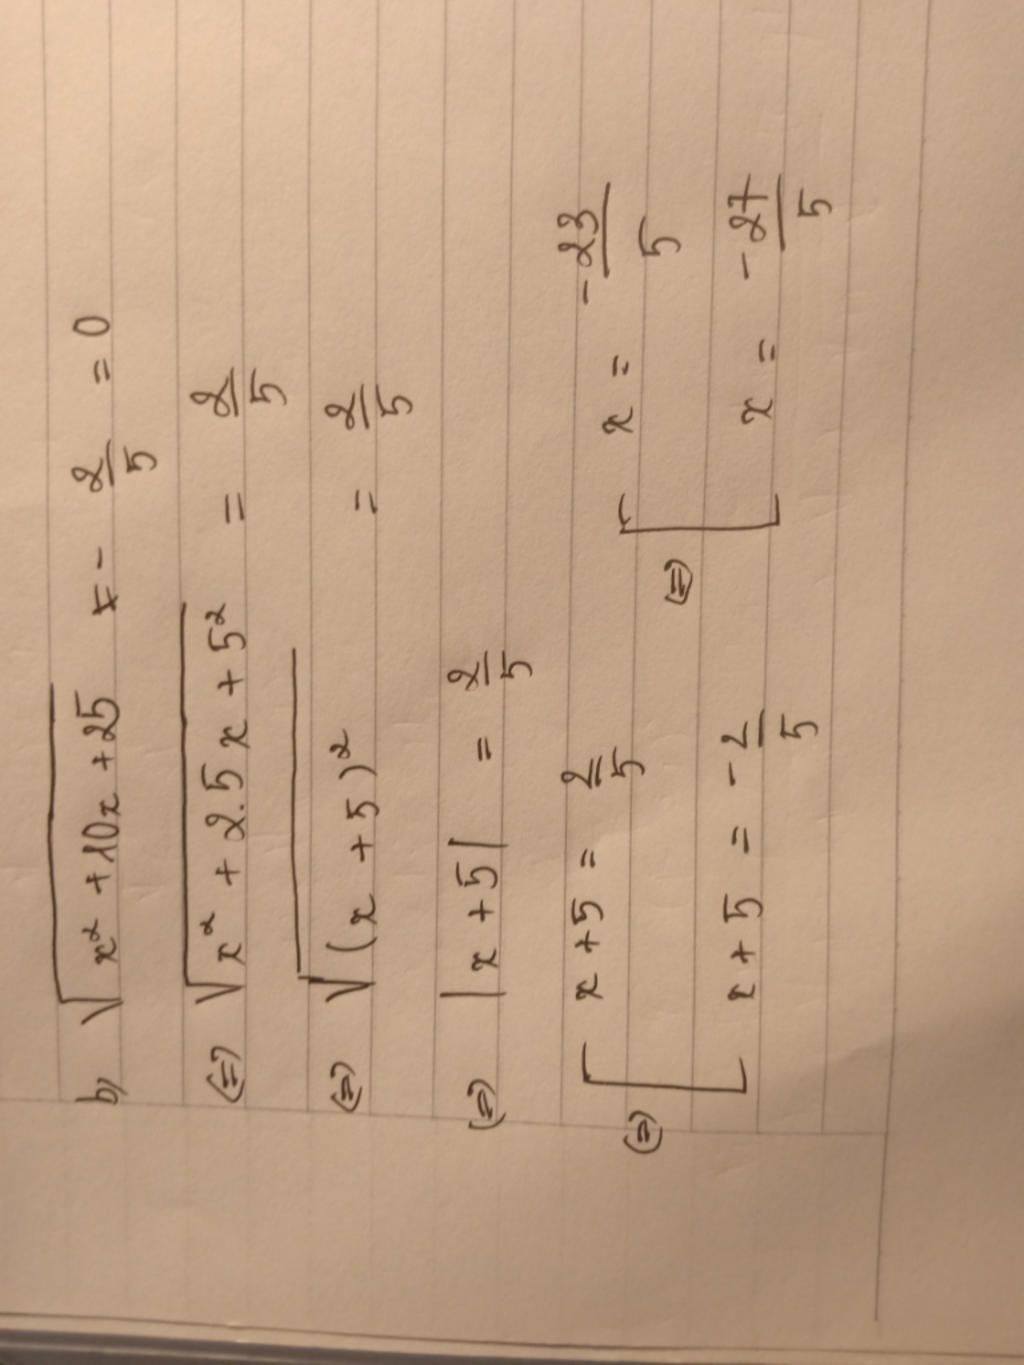 b) √(x² + 10x + 25) - 2/5 = 0
(=) √(x² + 2.5x + 5²) = 2/5
(=) √((x + 5)²) = 2/5
(=) |x + 5| = 2/5
(=) [ x + 5 = 2/5 (=) [ x = -23/5
x + 5 = -2/5 x = -27/5